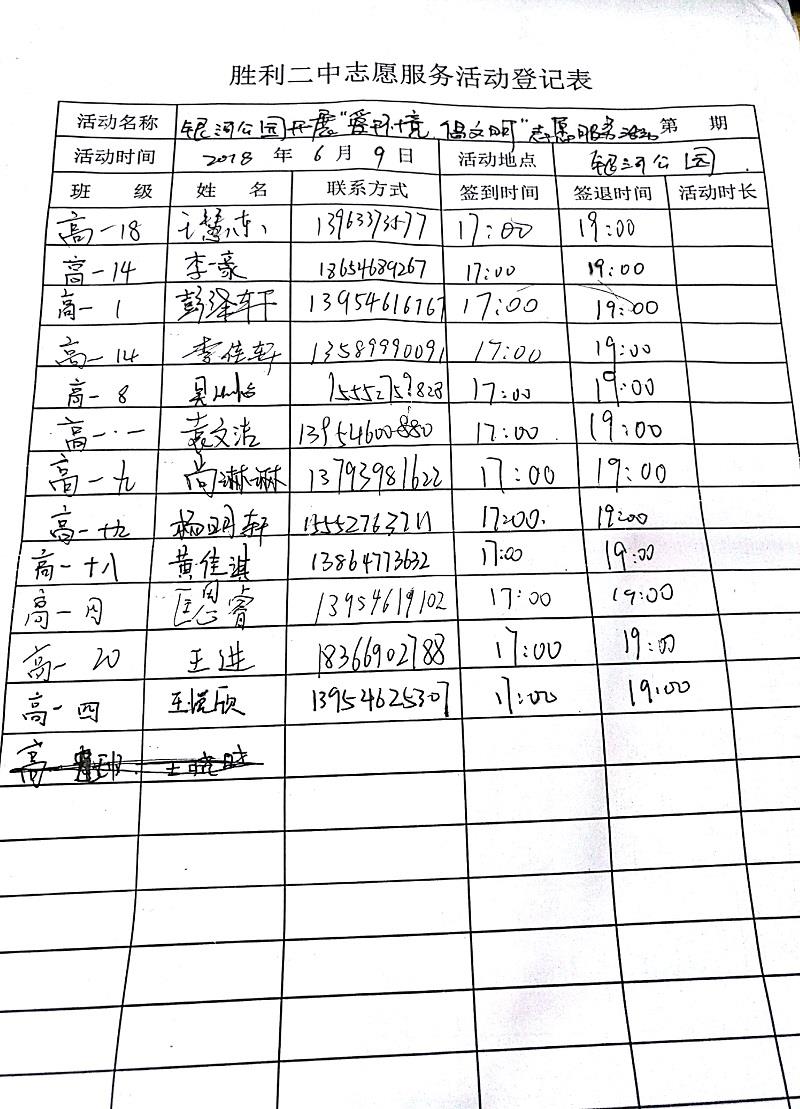 胜利二中志愿服务活动登记表
活动名称 银河公园开展"爱环境,倡文明"志愿服务活动 第 期
活动时间 2018 年 6 月 9 日 活动地点 银河公园
班 级 姓 名 联系方式 签到时间 签退时间 活动时长
高一18 13963373577 17:00 19:00
高一14 李一豪 18654689267 17:00 19:00
高一1 彭泽轩 13954616767 17:00 19:00
高一14 李佳轩 13589990091 17:00 19:00
高一8 17:00 19:00
高一·一 袁文浩 13954600880 17:00 19:00
高一九 尚琳琳 13793981622 17:00 19:00
高一十九 杨明轩 15552763711 17:00. 19:00
高一十八 黄佳淇 13864773632 17:00 19:00
高一 13954619102 17:00 19:00
高一20 王进 18366902788 17:00 19:00
高一四 欣 13954625307 17:00 19:00
高一 班